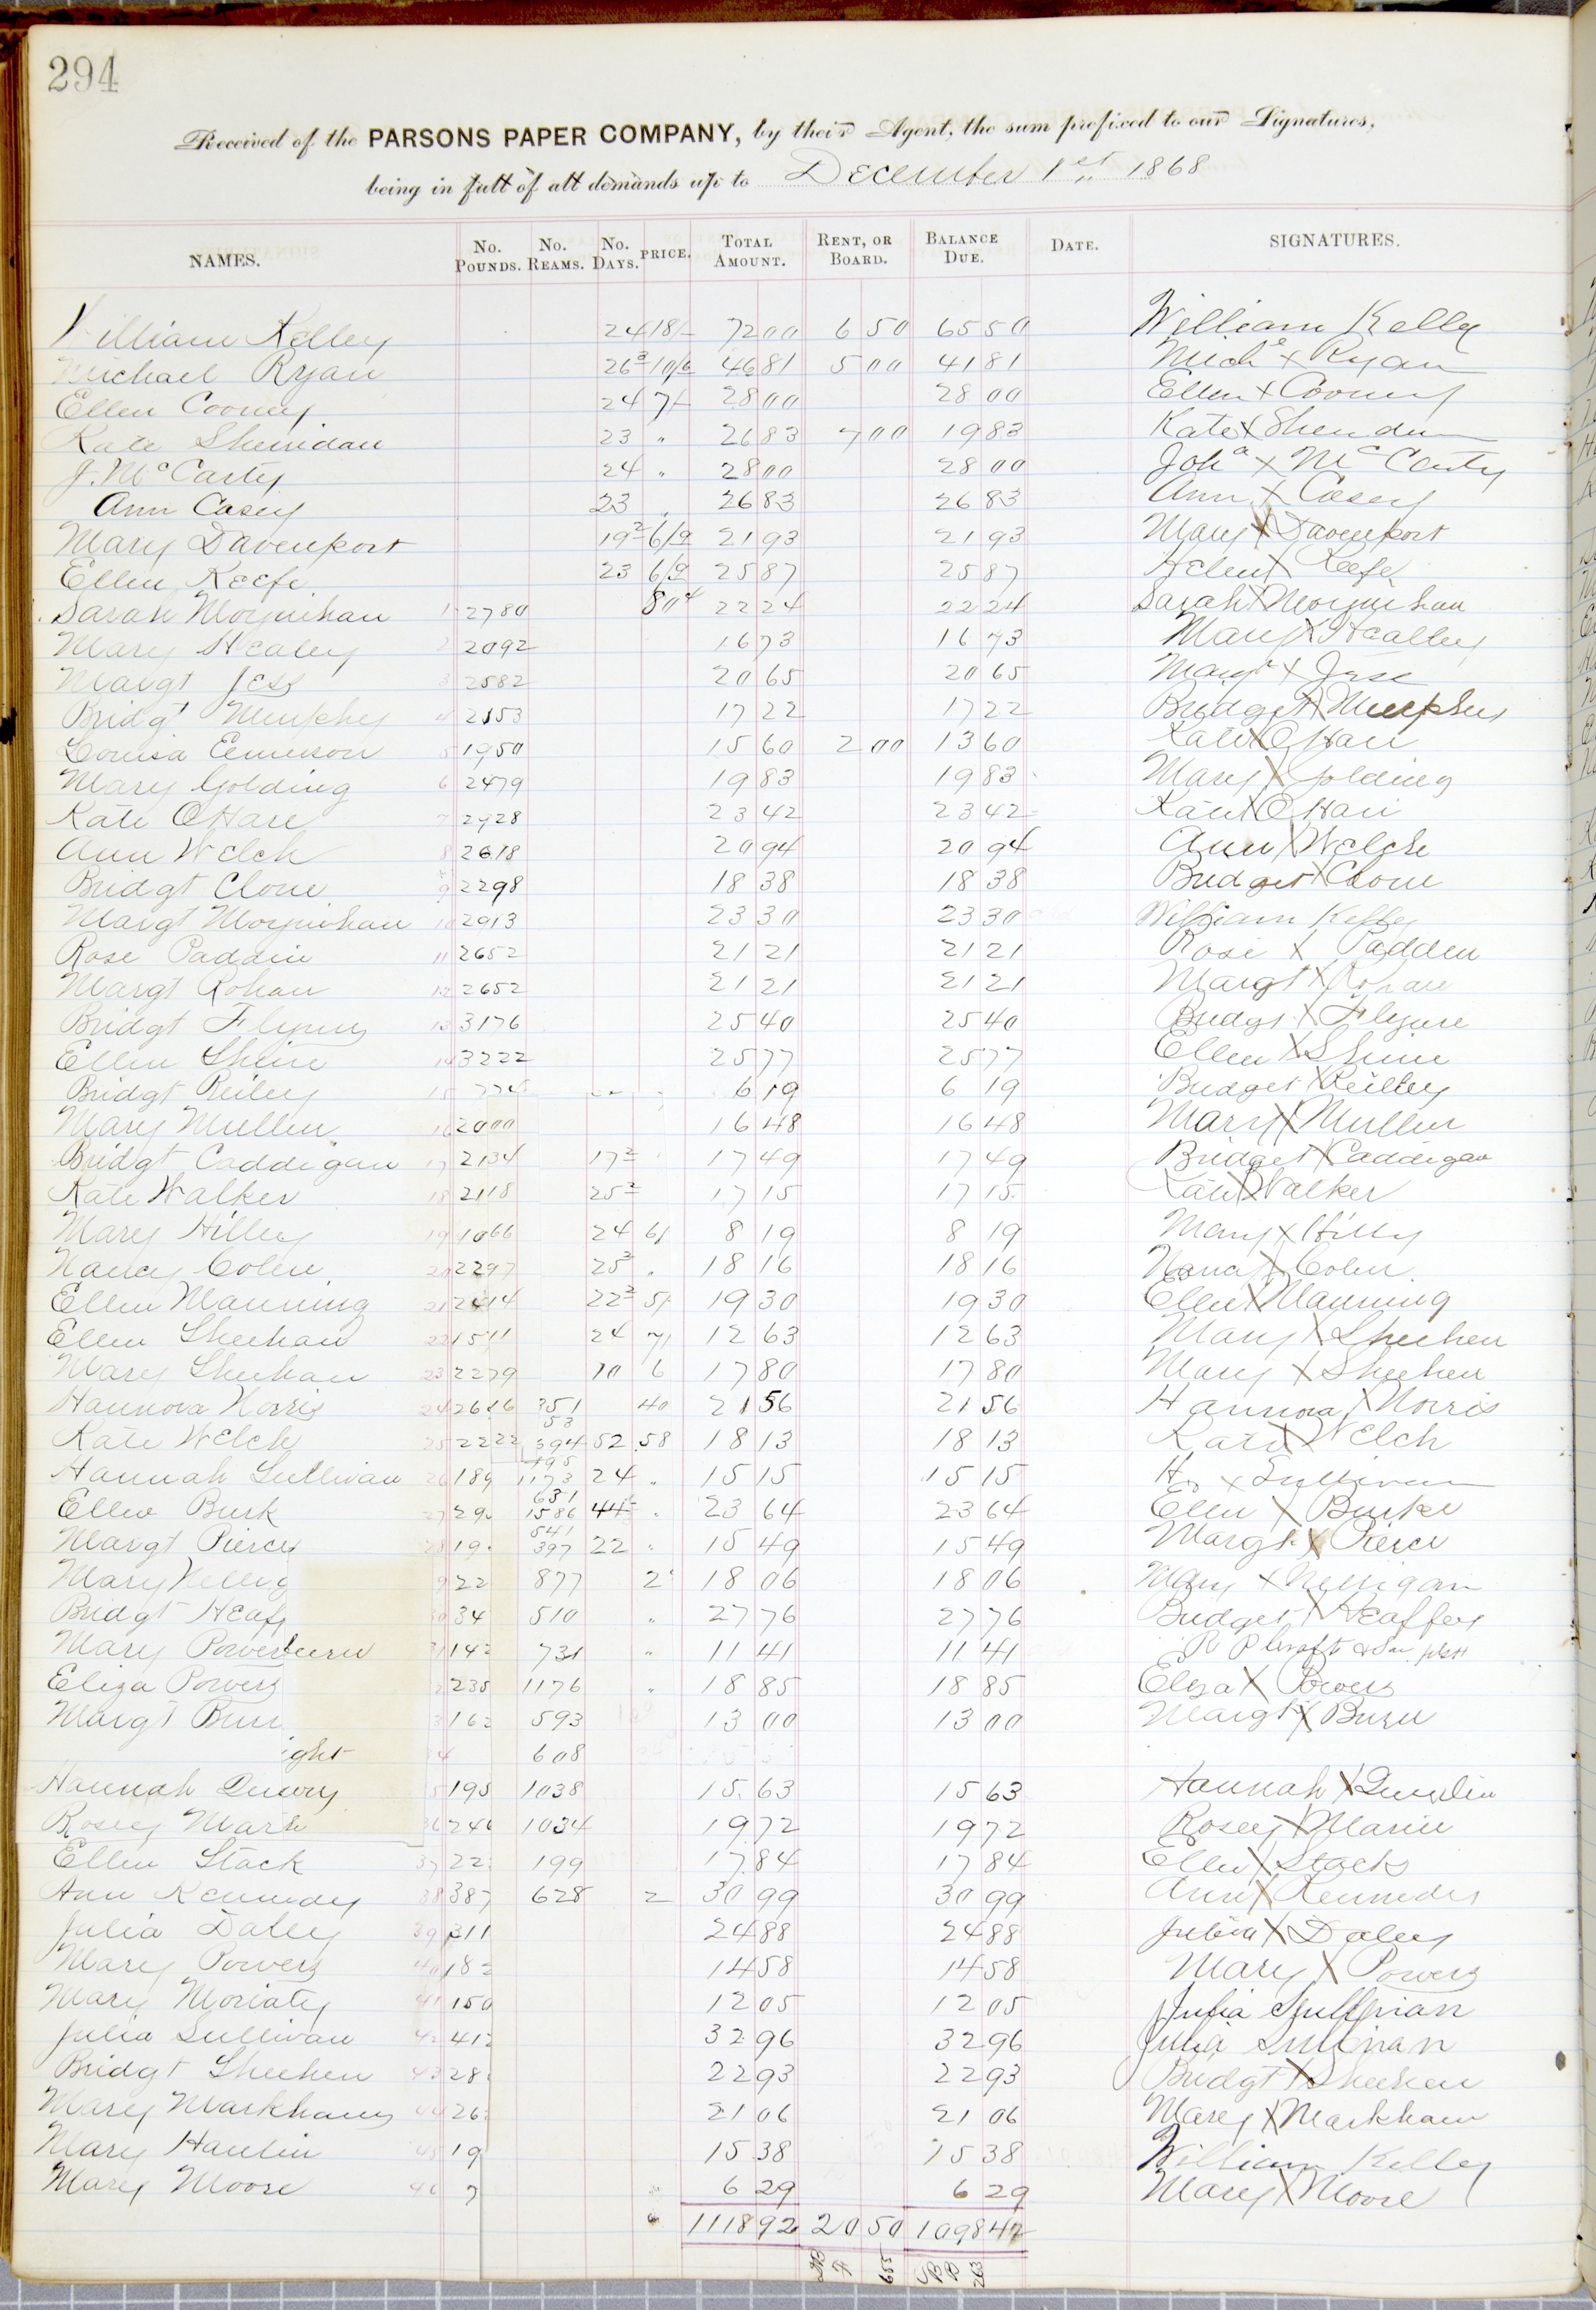 294
Received of the PARSONS PAPER COMPANY, by their Agent, the sum prefixed to our Signatures,
being in full of all demands up to December 1st 1868
NAMES. No. POUNDS. No. REAMS. No. DAYS. PRICE. TOTAL AMOUNT. RENT, OR BOARD. BALANCE DUE. DATE. SIGNATURES.
William Kelley 24 18/- 72 00 6 50 65 50 William Kelly
Michael Ryan 26 10/6 46 81 5 00 41 81 Mich x Ryan
Ellen Cooney 24 7/- 28 00 28 00 Ellen x Cooney
Kate Sheridan 23 " 26 83 7 00 19 83 Kate x Sheridan
J. McCarty 24 " 28 00 28 00 Joha x McCarty
Ann Casey 23 " 26 83 26 83 Ann x Casey
Mary Davenport 19 2 6/9 21 93 21 93 Mary x Davenport
Ellen Keefe 23 6/9 25 87 25 87 Helen x Keefe
Sarah Moynihan 1 2780 80 22 24 22 24 Sarah x Moynihan
Mary Healey 2 2092 16 73 16 73 Mary x Healley
Margt Jess 3 2582 20 65 20 65 Margt x Jess
Bridgt Murphy 4 2153 17 22 17 22 Bridget x Murphy
Louisa Emerson 5 1950 15 60 2 00 13 60 Kate x OHare
Mary Golding 6 2479 19 83 19 83 Mary x Golding
Kate OHare 7 2928 23 42 23 42 Kate x OHare
Ann Welch 8 2618 20 94 20 94 Ann x Welch
Bridgt Clone 9 2298 18 38 18 38 Bridget x Clone
Margt Moynihan 10 2913 23 30 23 30 William Kelley
Rose Paddin 11 2652 21 21 21 21 Rose x Padden
Margt Rohan 12 2652 21 21 21 21 Margt x Rohan
Bridgt Flynn 13 3176 25 40 25 40 Bridgt x Flynn
Ellen Shine 14 3222 25 77 25 77 Ellen x Shine
Bridgt Reiley 15 774 6 19 6 19 Bridget x Reilley
Mary Mullen 16 2000 16 48 16 48 Mary x Mullen
Bridgt Caddigan 17 2134 17 2 17 49 17 49 Bridget x Caddigan
Kate Walker 18 2118 25 2 17 15 17 15 Kate x Walker
Mary Hilley 19 1066 24 6/ 8 19 8 19 Mary x Hilly
Nancy Colen 20 2297 25 2 " 18 16 18 16 Nancy x Colen
Ellen Manning 21 2414 22 2 5/ 19 30 19 30 Ellen x Manning
Ellen Sheehan 22 1511 24 7/ 12 63 12 63 Mary x Sheehen
Mary Sheehan 23 2279 10 6 17 80 17 80 Mary x Sheehen
Hannora Norris 24 2616 351 40 21 56 21 56 Hannora x Norris
53
Kate Welch 25 2222 394 52 58 18 13 18 13 Kate x Welch
195
Hannah Sullivan 26 189 1173 24 " 15 15 15 15 Hn x Sullivan
631
Ellen Burk 27 29 1586 44 " 23 64 23 64 Ellen x Burke
541
Margt Piercy 28 19 397 22 " 15 49 15 49 Margt x Pierce
Mary Nellig 9 22 877 2 18 06 18 06 Mary x Nelligan
Bridgt Heaf 30 34 510 " 27 76 27 76 Bridget x Heaffey
Mary Power 31 142 731 " 11 41 11 41
Eliza Powers 2 235 1176 " 18 85 18 85 Eliza x Powers
Margt Bur 3 162 593 13 00 13 00 Margt x Burn
ight 4 608
Hannah Quin 5 195 1038 15 63 15 63 Hannah x Quinlin
Rosey Mari 36 246 1034 19 72 19 72 Rosey x Marin
Ellen Stack 37 22 199 17 84 17 84 Ellen x Stack
Ann Kennedy 38 387 628 2 30 99 30 99 Ann x Kennedy
Julia Daley 39 311 24 88 24 88 Julia x Daley
Mary Powers 40 182 14 58 14 58 Mary x Powers
Mary Moriaty 41 150 12 05 12 05 Julia Sullivan
Julia Sullivan 42 412 32 96 32 96 Julia Sullivan
Bridgt Sheehen 43 28 22 93 22 93 Bridgt x Sheehen
Mary Markham 44 26 21 06 21 06 Mary x Markham
Mary Hanlin 45 19 15 38 15 38 William Kelley
Mary Moore 46 7 6 29 6 29 Mary x Moore
1118 92 20 50 1098 42
655 263